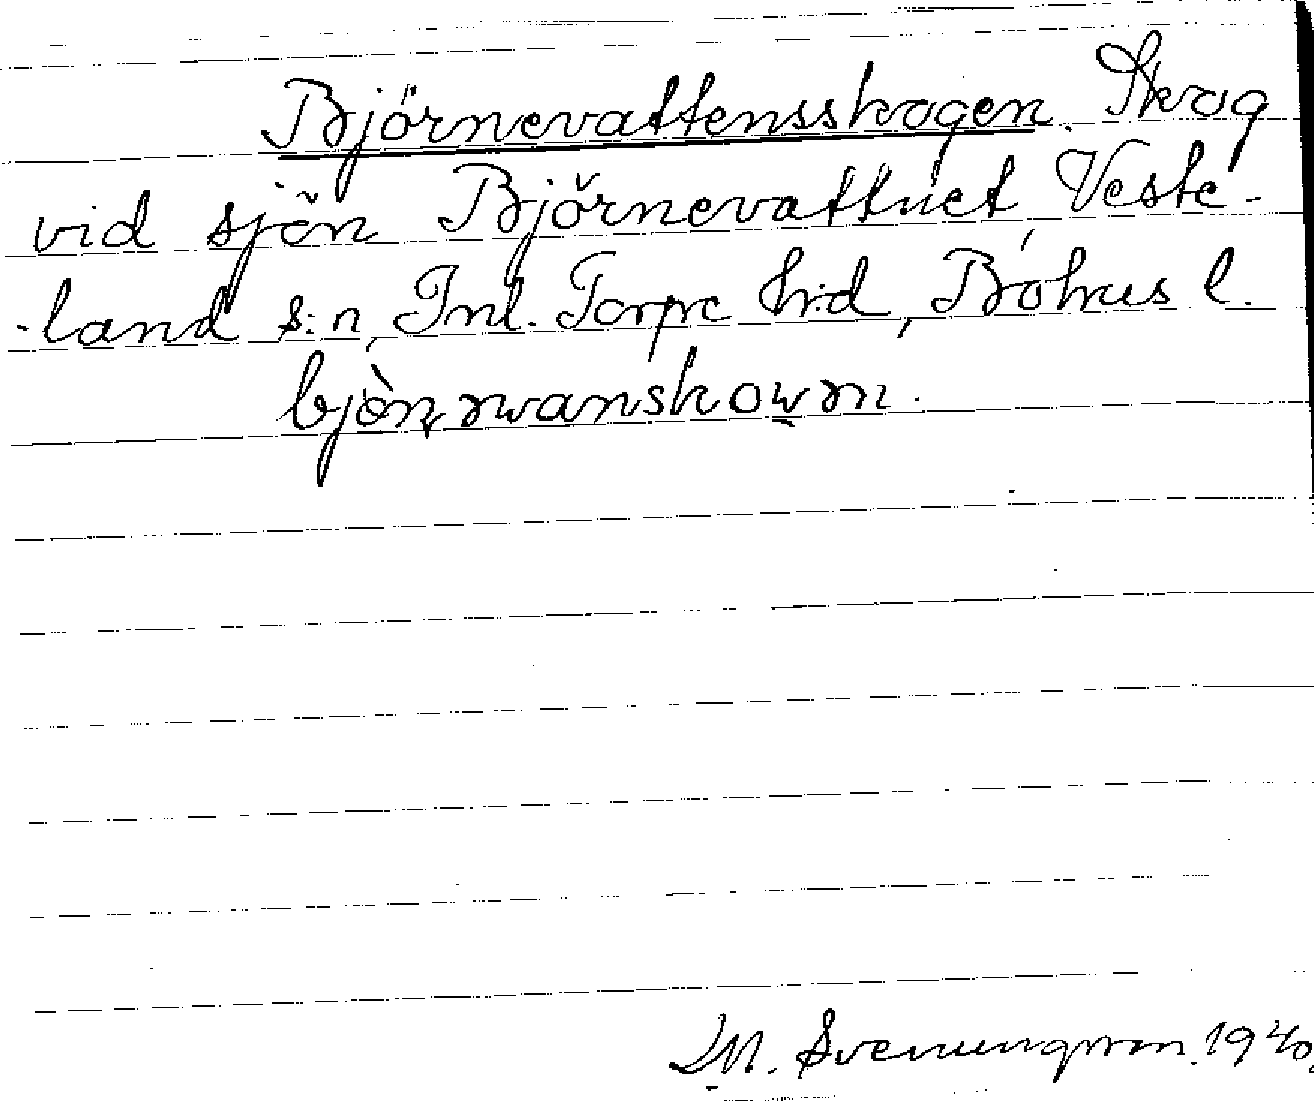 Björnevattensskogen. Skog
vid sjön Björnevattnet, Veste-
-land s:n, Inl. Torpe h:d, Bohus l.
M. Svenungsson. 1940.